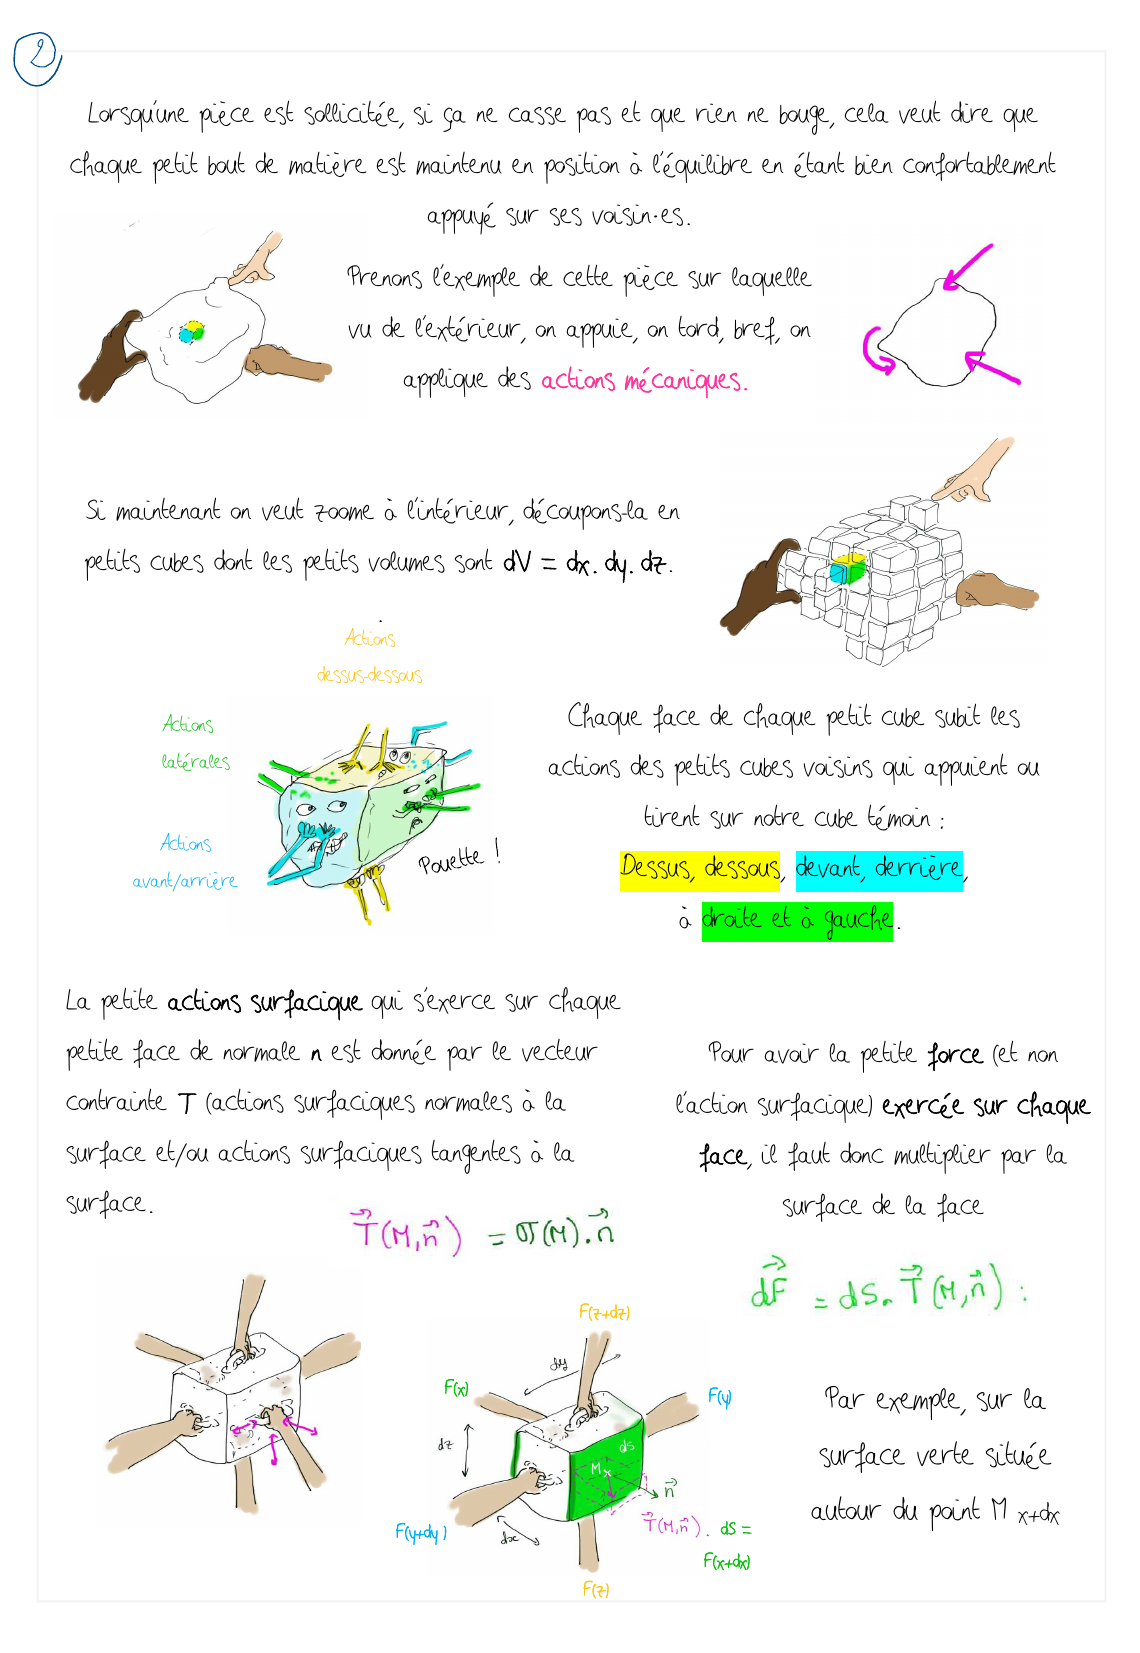 2
Lorsqu'une pièce est sollicitée, si ça ne casse pas et que rien ne bouge, cela veut dire que
chaque petit bout de matière est maintenu en position à l'équilibre en étant bien confortablement
appuyé sur ses voisin·es.
Prenons l'exemple de cette pièce sur laquelle
vu de l'extérieur, on appuie, on tord, bref, on
applique des actions mécaniques.
Si maintenant on veut zoome à l'intérieur, découpons-la en
petits cubes dont les petits volumes sont dV = dx. dy. dz.
.
Actions
dessus-dessous
Actions
latérales
Actions
avant/arrière
Pouette !
Chaque face de chaque petit cube subit les
actions des petits cubes voisins qui appuient ou
tirent sur notre cube témoin :
Dessus, dessous, devant, derrière,
à droite et à gauche.
La petite actions surfacique qui s'exerce sur chaque
petite face de normale n est donnée par le vecteur
contrainte T (actions surfaciques normales à la
surface et/ou actions surfaciques tangentes à la
surface.
T⃗(M,n⃗) = σ(M).n⃗
Pour avoir la petite force (et non
l'action surfacique) exercée sur chaque
face, il faut donc multiplier par la
surface de la face
dF⃗ = dS. T⃗(M,n⃗) :
F(z+dz)
dy
F(x)
F(y)
dz
dS
M x
n⃗
T⃗(M,n⃗). dS =
F(x+dx)
F(y+dy)
dx
F(z)
Par exemple, sur la
surface verte située
autour du point M x+dx